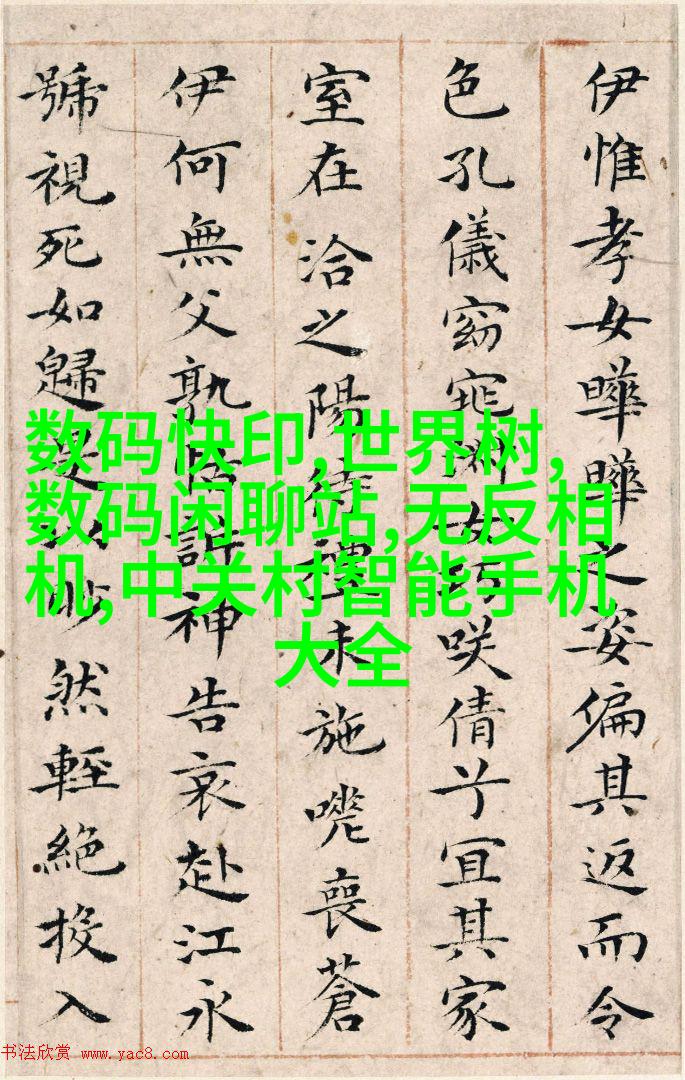 伊惟孝女曄曄之姿偏其返而令
色孔儀窈窕淑女巧咲倩兮宜其家
室在洽之陽待禮未施嗟喪蒼
伊何無父孰怙訴神告哀赴江永
號視死如歸是以眇然輕絕投入
数码快印,世界树,
数码闲聊站,无反相
机,中关村智能手机
大全
书法欣赏 www.yac8.com